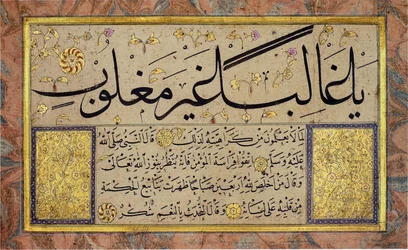 يا غالبا غير مغلوب
لما لا يعلمون من لذلك قال النبي صلى الله
عليه وسلم اتقوا فراسة المؤمن فانه ينظر بنور الله تعالى
وقال من اخلص لله اربعين صباحا ظهرت ينابيع الحكمة
من قلبه على لسانه وقال التحدث بالنعم شكر